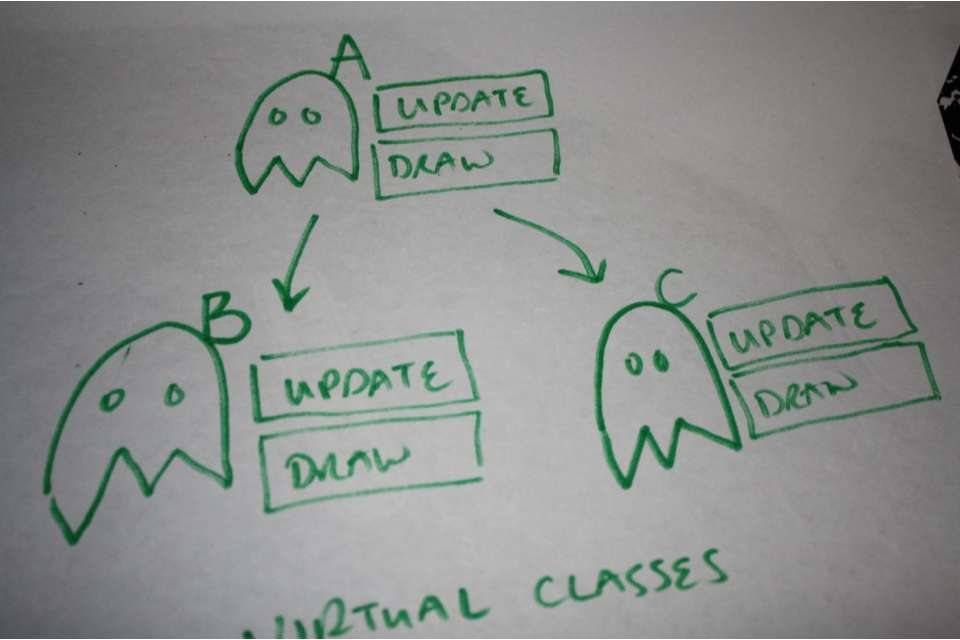 A
UPDATE
DRAW
B
UPDATE
DRAW
C
UPDATE
DRAW
VIRTUAL CLASSES